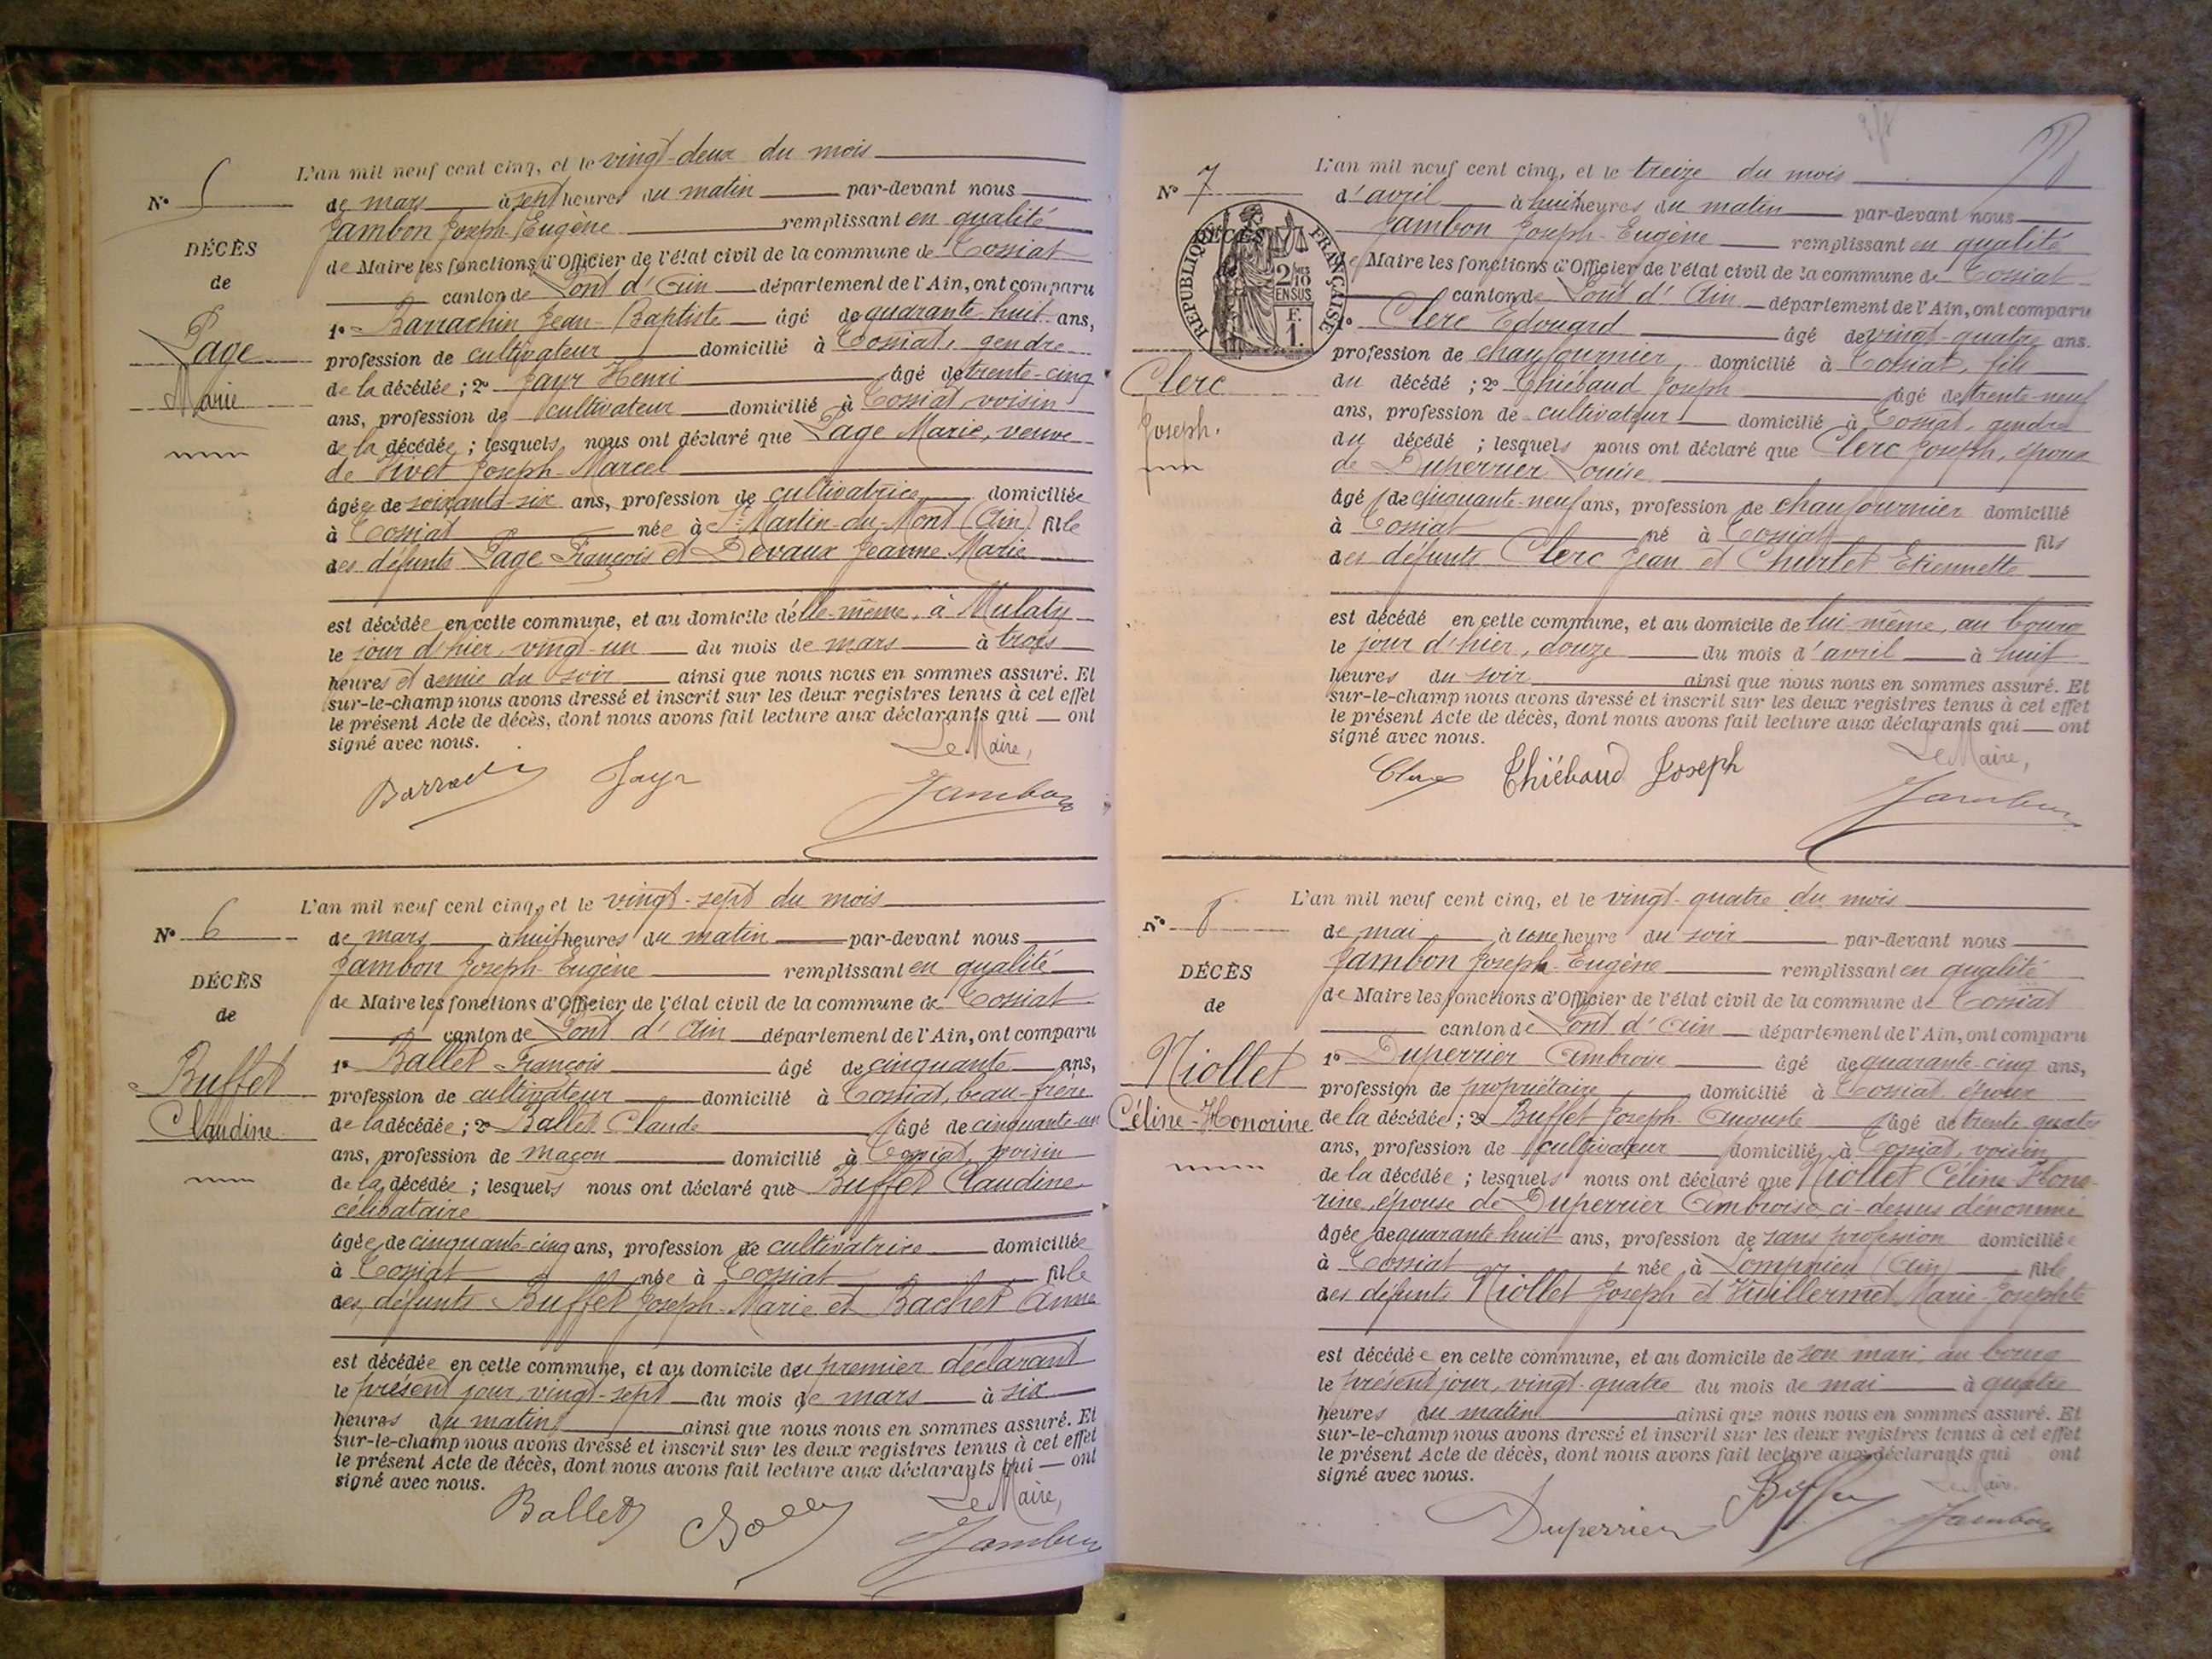 L'an mil neuf cent cinq, et le vingt-deux du mois
N° 5
de mars à sept heures du matin par-devant nous
Jambon Joseph-Eugène remplissant en qualité
DÉCÈS
de
Page
Marie
de Maire les fonctions d'Officier de l'état civil de la commune de Tossiat
canton de Pont d'Ain département de l'Ain, ont comparu
1° Barrachin Jean-Baptiste âgé de quarante-huit ans,
profession de cultivateur domicilié à Tossiat, gendre
de la décédée ; 2° Jayr Henri âgé de trente-cinq
ans, profession de cultivateur domicilié à Tossiat, voisin
de la décédée ; lesquels nous ont déclaré que Page Marie, veuve
de Vivet Joseph-Marcel
âgée de soixante-six ans, profession de cultivatrice domiciliée
à Tossiat née à St Martin-du-Mont (Ain) fille
des défunts Page François et Devaux Jeanne Marie
est décédée en cette commune, et au domicile d'elle-même, à Mulaty
le jour d'hier, vingt-un du mois de mars à trois
heures et demie du soir ainsi que nous nous en sommes assuré. Et
sur-le-champ nous avons dressé et inscrit sur les deux registres tenus à cet effet
le présent Acte de décès, dont nous avons fait lecture aux déclarants qui ont
signé avec nous.
Le Maire,
Jayr Jambon
L'an mil neuf cent cinq, et le vingt-sept du mois
N° 6
de mars à huit heures du matin par-devant nous
Jambon Joseph-Eugène remplissant en qualité
DÉCÈS
de
Buffet
Claudine
de Maire les fonctions d'Officier de l'état civil de la commune de Tossiat
canton de Pont d'Ain département de l'Ain, ont comparu
1° Ballet François âgé de cinquante ans,
profession de cultivateur domicilié à Tossiat, beau-frère
de la décédée ; 2° Ballet Claude âgé de cinquante-un
ans, profession de maçon domicilié à Tossiat, voisin
de la décédée ; lesquels nous ont déclaré que Buffet Claudine
célibataire
âgée de cinquante-cinq ans, profession de cultivatrice domiciliée
à Tossiat née à Tossiat fille
des défunts Buffet Joseph-Marie et Bachet Anne
est décédée en cette commune, et au domicile du premier déclarant
le présent jour, vingt-sept du mois de mars à six
heures du matin ainsi que nous nous en sommes assuré. Et
sur-le-champ nous avons dressé et inscrit sur les deux registres tenus à cet effet
le présent Acte de décès, dont nous avons fait lecture aux déclarants qui ont
signé avec nous.
Le Maire,
Ballet Jambon
L'an mil neuf cent cinq, et le treize du mois
N° 7
d'avril à huit heures du matin par-devant nous
Jambon Joseph-Eugène remplissant en qualité
DÉCÈS
RÉPUBLIQUE FRANÇAISE
2/10 MES
EN SUS
F.
1.
Clerc
Joseph.
de Maire les fonctions d'Officier de l'état civil de la commune de Tossiat
canton de Pont d'Ain département de l'Ain, ont comparu
1° Clerc Edouard âgé de vingt-quatre ans.
profession de chaufournier domicilié à Tossiat, fils
du décédé ; 2° Thiébaud Joseph âgé de trente-neuf
ans, profession de cultivateur domicilié à Tossiat, gendre
du décédé ; lesquels nous ont déclaré que Clerc Joseph, époux
de Duperrier Louise
âgé de cinquante-neuf ans, profession de chaufournier domicilié
à Tossiat né à Tossiat fils
des défunts Clerc Jean et Churlet Etiennette
est décédé en cette commune, et au domicile de lui-même, au bourg
le jour d'hier, douze du mois d'avril à huit
heures du soir ainsi que nous nous en sommes assuré. Et
sur-le-champ nous avons dressé et inscrit sur les deux registres tenus à cet effet
le présent Acte de décès, dont nous avons fait lecture aux déclarants qui ont
signé avec nous.
Le Maire,
Thiébaud Joseph Jambon
L'an mil neuf cent cinq, et le vingt-quatre du mois
N° 8
de mai à une heure du soir par-devant nous
Jambon Joseph-Eugène remplissant en qualité
DÉCÈS
de
Niollet
Céline-Honorine
de Maire les fonctions d'Officier de l'état civil de la commune de Tossiat
canton de Pont d'Ain département de l'Ain, ont comparu
1° Duperrier Ambroise âgé de quarante-cinq ans,
profession de propriétaire domicilié à Tossiat, époux
de la décédée ; 2° Buffet Joseph-Auguste âgé de trente-quatre
ans, profession de cultivateur domicilié à Tossiat, voisin
de la décédée ; lesquels nous ont déclaré que Niollet Céline-Hono-
rine, épouse de Duperrier Ambroise, ci-dessus dénommé
âgée de quarante-huit ans, profession de sans profession domiciliée
à Tossiat née à Lompnieu (Ain) fille
des défunts Niollet Joseph et Vuillermet Marie-Josephte
est décédée en cette commune, et au domicile de son mari, au bourg
le présent jour, vingt-quatre du mois de mai à quatre
heures du matin ainsi que nous nous en sommes assuré. Et
sur-le-champ nous avons dressé et inscrit sur les deux registres tenus à cet effet
le présent Acte de décès, dont nous avons fait lecture aux déclarants qui ont
signé avec nous.
Le Maire.
Duperrier Jambon